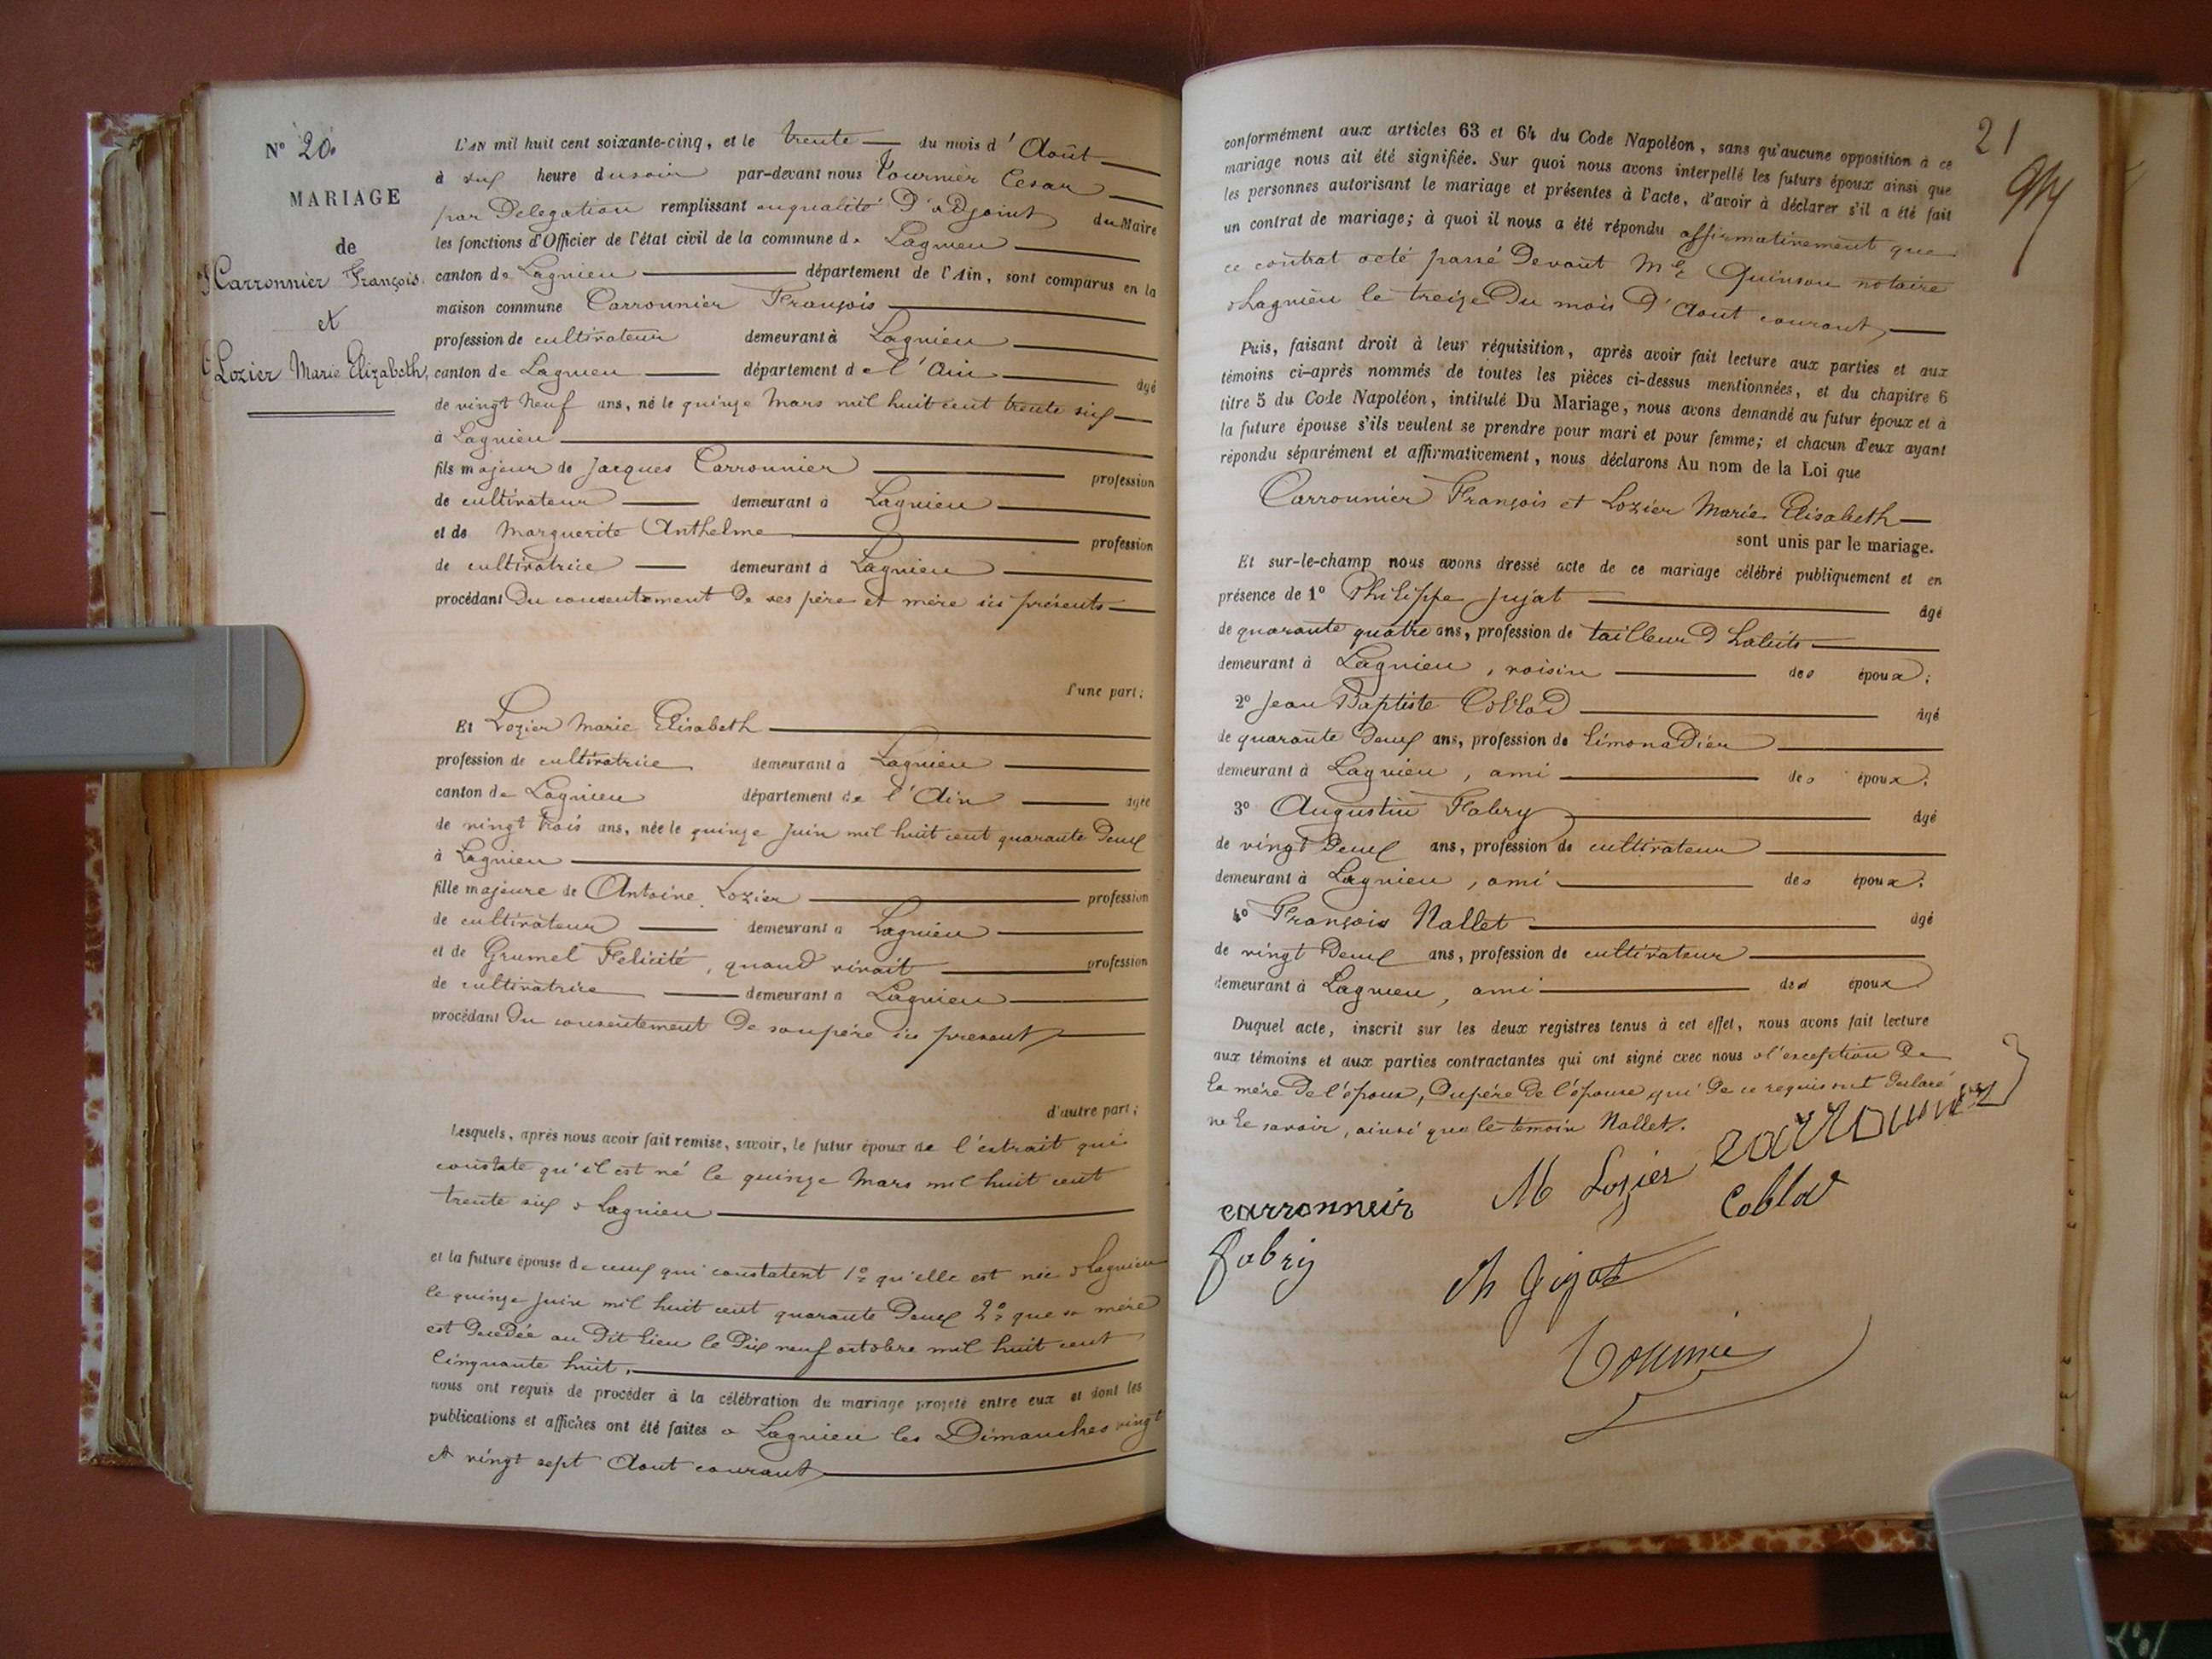 N° 20.
MARIAGE
de
Carronnier François.
et
Lozier Marie Elizabeth,
L'AN mil huit cent soixante-cinq, et le trente du mois d'Août
à six heure du soir par-devant nous Tournier Cesar
par Délégation remplissant en qualité D'adjoint du Maire
les fonctions d'Officier de l'état civil de la commune de Lagnieu
canton de Lagnieu département de l'Ain, sont comparus en la
maison commune Carronnier François
profession de cultivateur demeurant à Lagnieu
canton de Lagnieu département de l'Ain âgé
de vingt Neuf ans, né le quinze Mars mil huit cent trente six
à Lagnieu
fils majeur de Jacques Carronnier profession
de cultivateur demeurant à Lagnieu
et de Marguerite Anthelme profession
de cultivatrice demeurant à Lagnieu
procédant Du consentement De ses père et mère ici présents
d'une part;
Et Lozier Marie Elisabeth
profession de cultivatrice demeurant à Lagnieu
canton de Lagnieu département de l'Ain âgée
de vingt trois ans, née le quinze Juin mil huit cent quarante Deux
à Lagnieu
fille majeure de Antoine Lozier profession
de cultivateur demeurant à Lagnieu
et de Grumel Felicité, quand vivait profession
de cultivatrice demeurant à Lagnieu
procédant Du consentement De son père ici présent
d'autre part;
Lesquels, après nous avoir fait remise, savoir, le futur époux de l'extrait qui
constate qu'il est né le quinze Mars mil huit cent
trente six à Lagnieu
et la future épouse de ceux qui constatent 1° qu'elle est née à Lagnieu
le quinze Juin mil huit cent quarante Deux 2° que sa mère
est Decédée au Dit lieu le Dix neuf octobre mil huit cent
Cinquante huit.
nous ont requis de procéder à la célébration du mariage projeté entre eux et dont les
publications et affiches ont été faites à Lagnieu les Dimanches vingt
et vingt sept Août courant
21
conformément aux articles 63 et 64 du Code Napoléon, sans qu'aucune opposition à ce
mariage nous ait été signifiée. Sur quoi nous avons interpellé les futurs époux ainsi que
les personnes autorisant le mariage et présentes à l'acte, d'avoir à déclarer s'il a été fait
un contrat de mariage; à quoi il nous a été répondu affirmativement que
ce contrat a été passé Devant Me Quinson notaire
à Lagnieu le treize Du mois D'Aout courant,
Puis, faisant droit à leur réquisition, après avoir fait lecture aux parties et aux
témoins ci-après nommés de toutes les pièces ci-dessus mentionnées, et du chapitre 6
titre 5 du Code Napoléon, intitulé Du Mariage, nous avons demandé au futur époux et à
la future épouse s'ils veulent se prendre pour mari et pour femme; et chacun d'eux ayant
répondu séparément et affirmativement, nous déclarons Au nom de la Loi que
Carronnier François et Lozier Marie Elisabeth
sont unis par le mariage.
Et sur-le-champ nous avons dressé acte de ce mariage célébré publiquement et en
présence de 1° Philippe Jujat âgé
de quarante quatre ans, profession de tailleur d habits
demeurant à Lagnieu, voisin des époux;
2° Jean Baptiste Coblod âgé
de quarante Deux ans, profession de limonadier
demeurant à Lagnieu, ami des époux;
3° Augustin Fabry âgé
de vingt Deux ans, profession de cultivateur
demeurant à Lagnieu, ami des époux;
4° François Nallet âgé
de vingt Deux ans, profession de cultivateur
demeurant à Lagnieu, ami des époux
Duquel acte, inscrit sur les deux registres tenus à cet effet, nous avons fait lecture
aux témoins et aux parties contractantes qui ont signé avec nous à l'exception De
la mère De l'époux, Du père De l'épouse qui De ce requis ont declaré
ne le savoir, ainsi que le temoin Nallet.
M Lozier carronnier
carronneir Coblod
fabry
Ph Gigat
Tournie